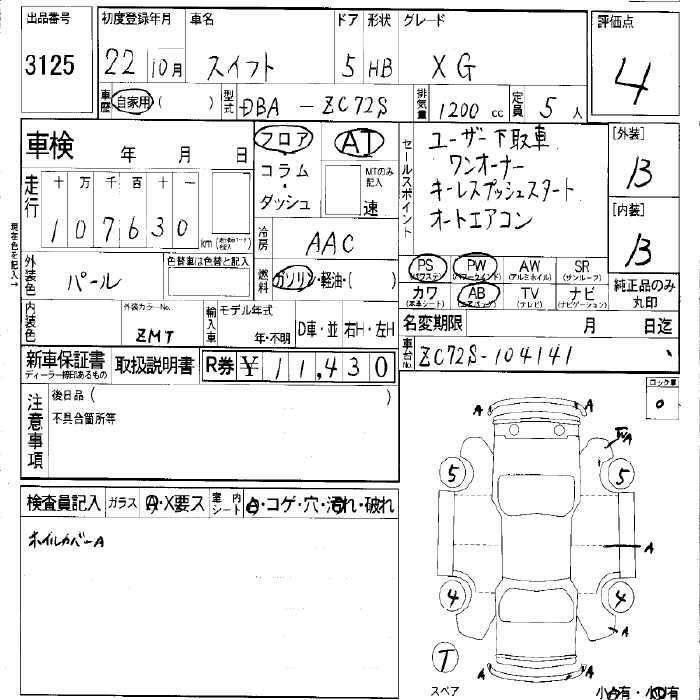 出品番号 初度登録年月 車名 ドア 形状 グレード 評価点
3125 22 10月 スイフト 5 HB XG 4
車歴 自家用 ( ) 型式 DBA - ZC72S 排気量 1200 cc 定員 5 人
車検 年 月 日
フロア AT
コラム・ダッシュ MTのみ記入 速
セールスポイント
ユーザー下取車
ワンオーナー
キーレスプッシュスタート
オートエアコン
[外装]
B
[内装]
B
走行 十 万 千 百 十 一
107630 km
冷房 AAC
外装色 パール 色替車は色替と記入
燃料 ガソリン・軽油・( )
PS (パワステ) PW (パワーウインド) AW (アルミホイル) SR (サンルーフ)
カワ (本革シート) AB (エアバッグ) TV (テレビ) ナビ (ナビゲーション)
純正品のみ丸印
内装色 外装カラーNo. ZMT 輸入車 モデル年式 年・不明 D車・並 右H・左H
名変期限 月 日迄
新車保証書 ディーラー捺印あるもの 取扱説明書 R券 ¥11,430
車台No. ZC72S-104141
現在色を記入→
注意事項 後日品 ( )
不具合箇所等
検査員記入 ガラス A・X要ス 室内シート A・コゲ・穴・汚れ・破れ
ホイルカバーA
A A
5 5
A
4 4
A
T
A A
スペア 小凹有